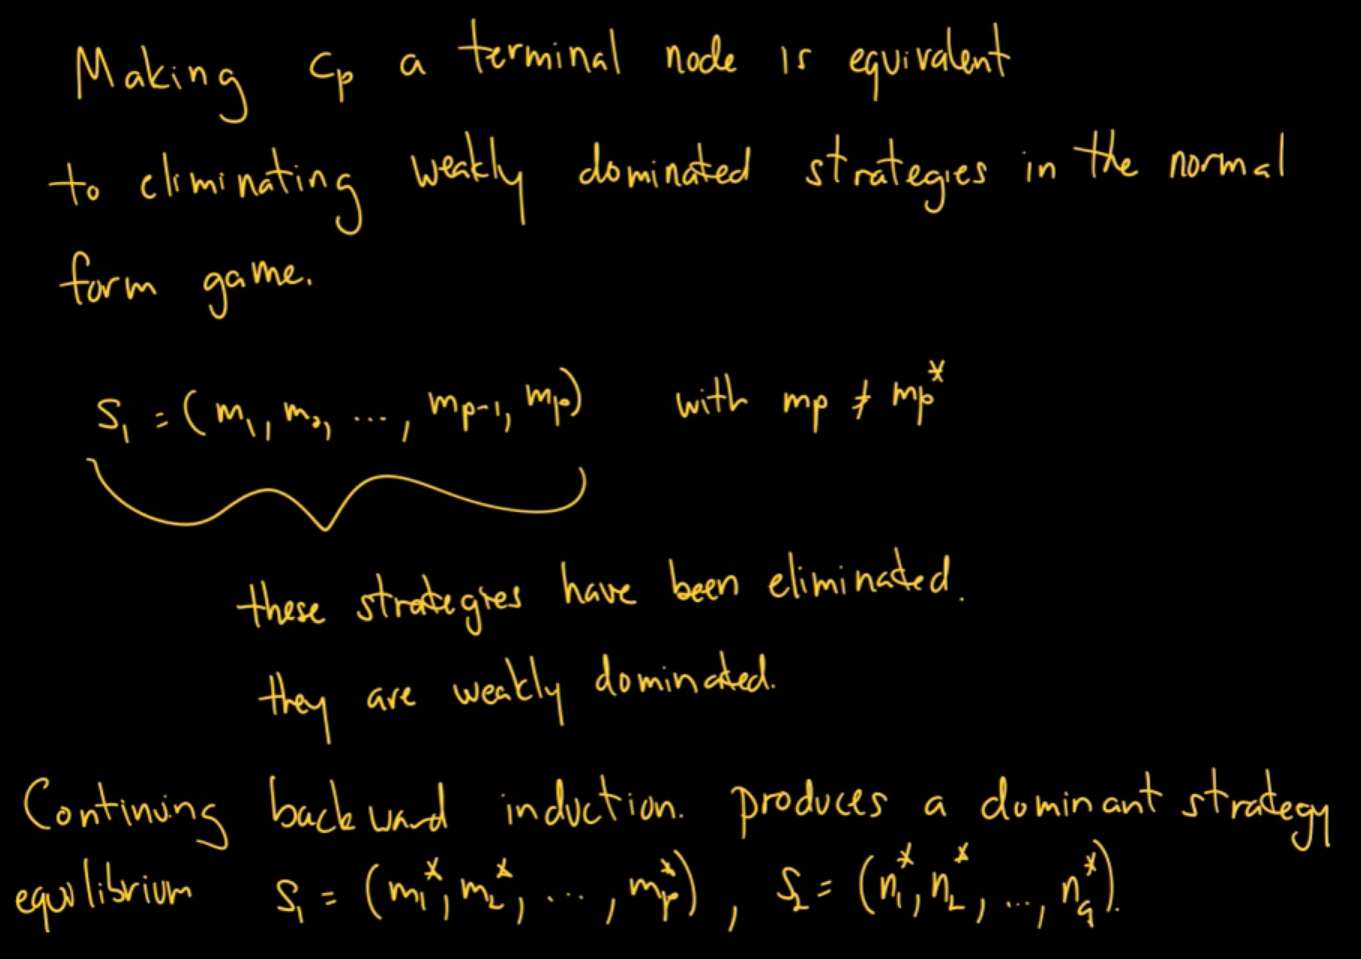 Making Cp a terminal node is equivalent
to eliminating weakly dominated strategies in the normal
form game.
S₁ = (m₁, m₂, ..., mp-1, mp) with mp ≠ mp*
these strategies have been eliminated.
they are weakly dominated.
Continuing backward induction. produces a dominant strategy
equilibrium S₁ = (m₁*, m₂*, ..., mp*), S₂ = (n₁*, n₂*, ..., nq*).